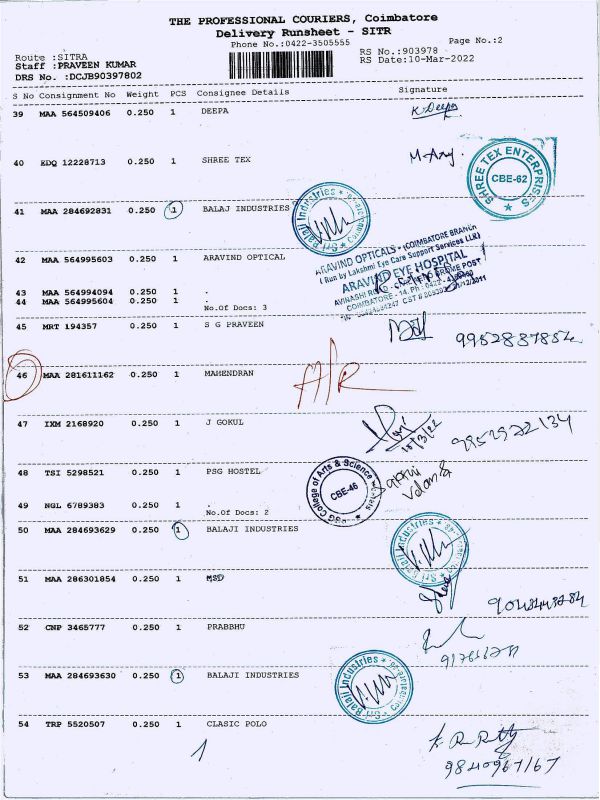 THE PROFESSIONAL COURIERS, Coimbatore
Delivery Runsheet - SITR
Phone No.:0422-3505555 Page No.:2
Route :SITRA RS No.:903978
Staff :PRAVEEN KUMAR RS Date:10-Mar-2022
DRS No. :DCJB90397802
S No Consignment No Weight PCS Consignee Details Signature
39 MAA 564509406 0.250 1 DEEPA K. Deepa
40 EDQ 12228713 0.250 1 SHREE TEX
SHREE TEX ENTERPRISES
CBE-62
41 MAA 284692831 0.250 1 BALAJ INDUSTRIES
Sri Balaji Industries
42 MAA 564995603 0.250 1 ARAVIND OPTICAL
ARAVIND OPTICALS - (COIMBATORE BRANCH
( Run by Lakshmi Eye Care Support Services LLP)
ARAVIND EYE HOSPITAL
43 MAA 564994094 0.250 1 .
44 MAA 564995604 0.250 1 .
No.Of Docs: 3
45 MRT 194357 0.250 1 S G PRAVEEN
46 MAA 281611162 0.250 1 MAMENDRAN
47 IXM 2168920 0.250 1 J GOKUL
15/3/22
9952972134
48 TSI 5298521 0.250 1 PSG HOSTEL
PSG College of Arts & Science
CBE-46
49 NGL 6789383 0.250 1
No.Of Docs: 2
50 MAA 284693629 0.250 1 BALAJI INDUSTRIES
Sri Balaji Industries
51 MAA 286301854 0.250 1 MSD
52 CNP 3465777 0.250 1 PRABBHU
53 MAA 284693630 0.250 1 BALAJI INDUSTRIES
Sri Balaji Industries
54 TRP 5520507 0.250 1 CLASIC POLO
1
9840967167